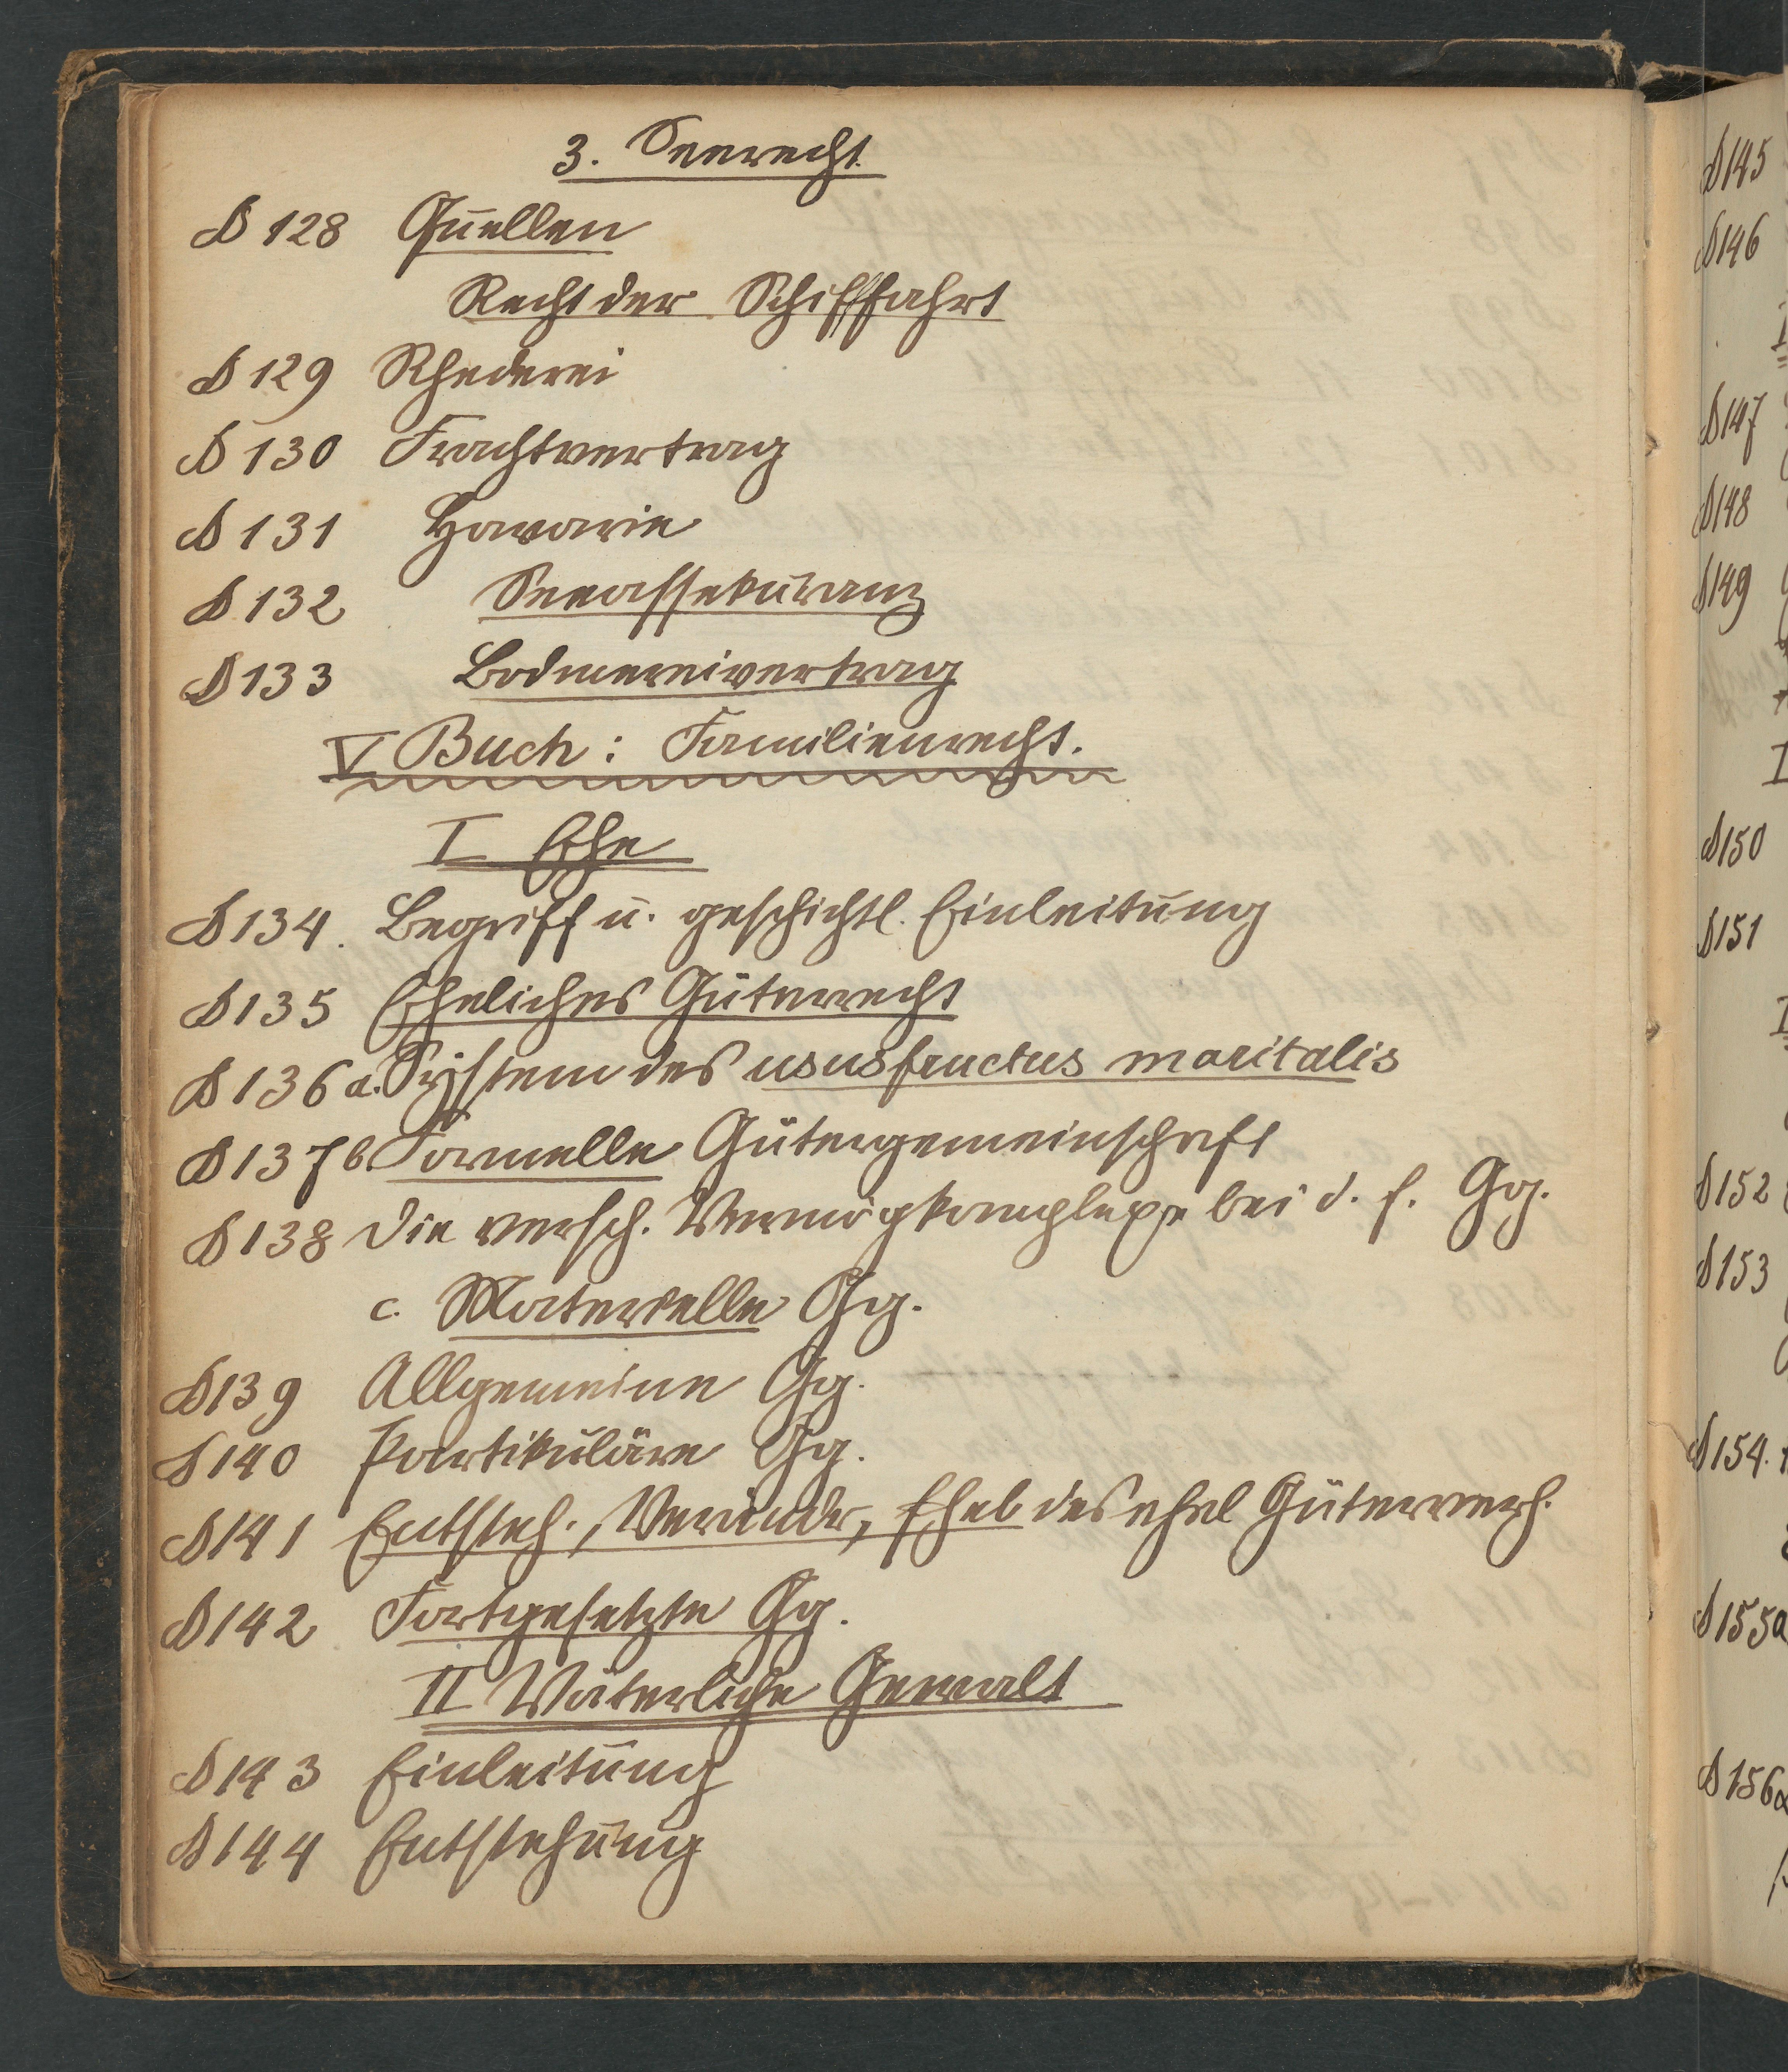 3. Seerecht.
§ 128 Quellen
Recht der Schifffahrt
§ 129 Rhederei
§ 130 Frachtvertrag
§ 131 Havarie
§ 132 Seeassekuranz
§ 133 Bodmereivertrag
V Buch: Familienrecht.
I Ehe
§ 134. Begriff u. geschichtl. Einleitung
§ 135 Eheliches Güterrecht
§ 136 a. System des ususfructus maritalis
§ 137 b. Formelle Gütergemeinschaft
§ 138 Die versch. Vermögkomplexe bei d. f. Gg.
c. Materielle Gg.
§ 139 Allgemeine Gg.
§ 140 Partikuläre Gg.
§ 141 Entsteh., Veränder, des ehel Güterverh.
§ 142 Fortgesetzte Gg.
II Väterliche Gewalt
§ 143 Einleitung
§ 144 Entstehung
§ 145
§ 146
§ 147
§ 148
§ 149
§ 150
§ 151
§ 152
§ 153
§ 154.
§ 155a
§ 156a